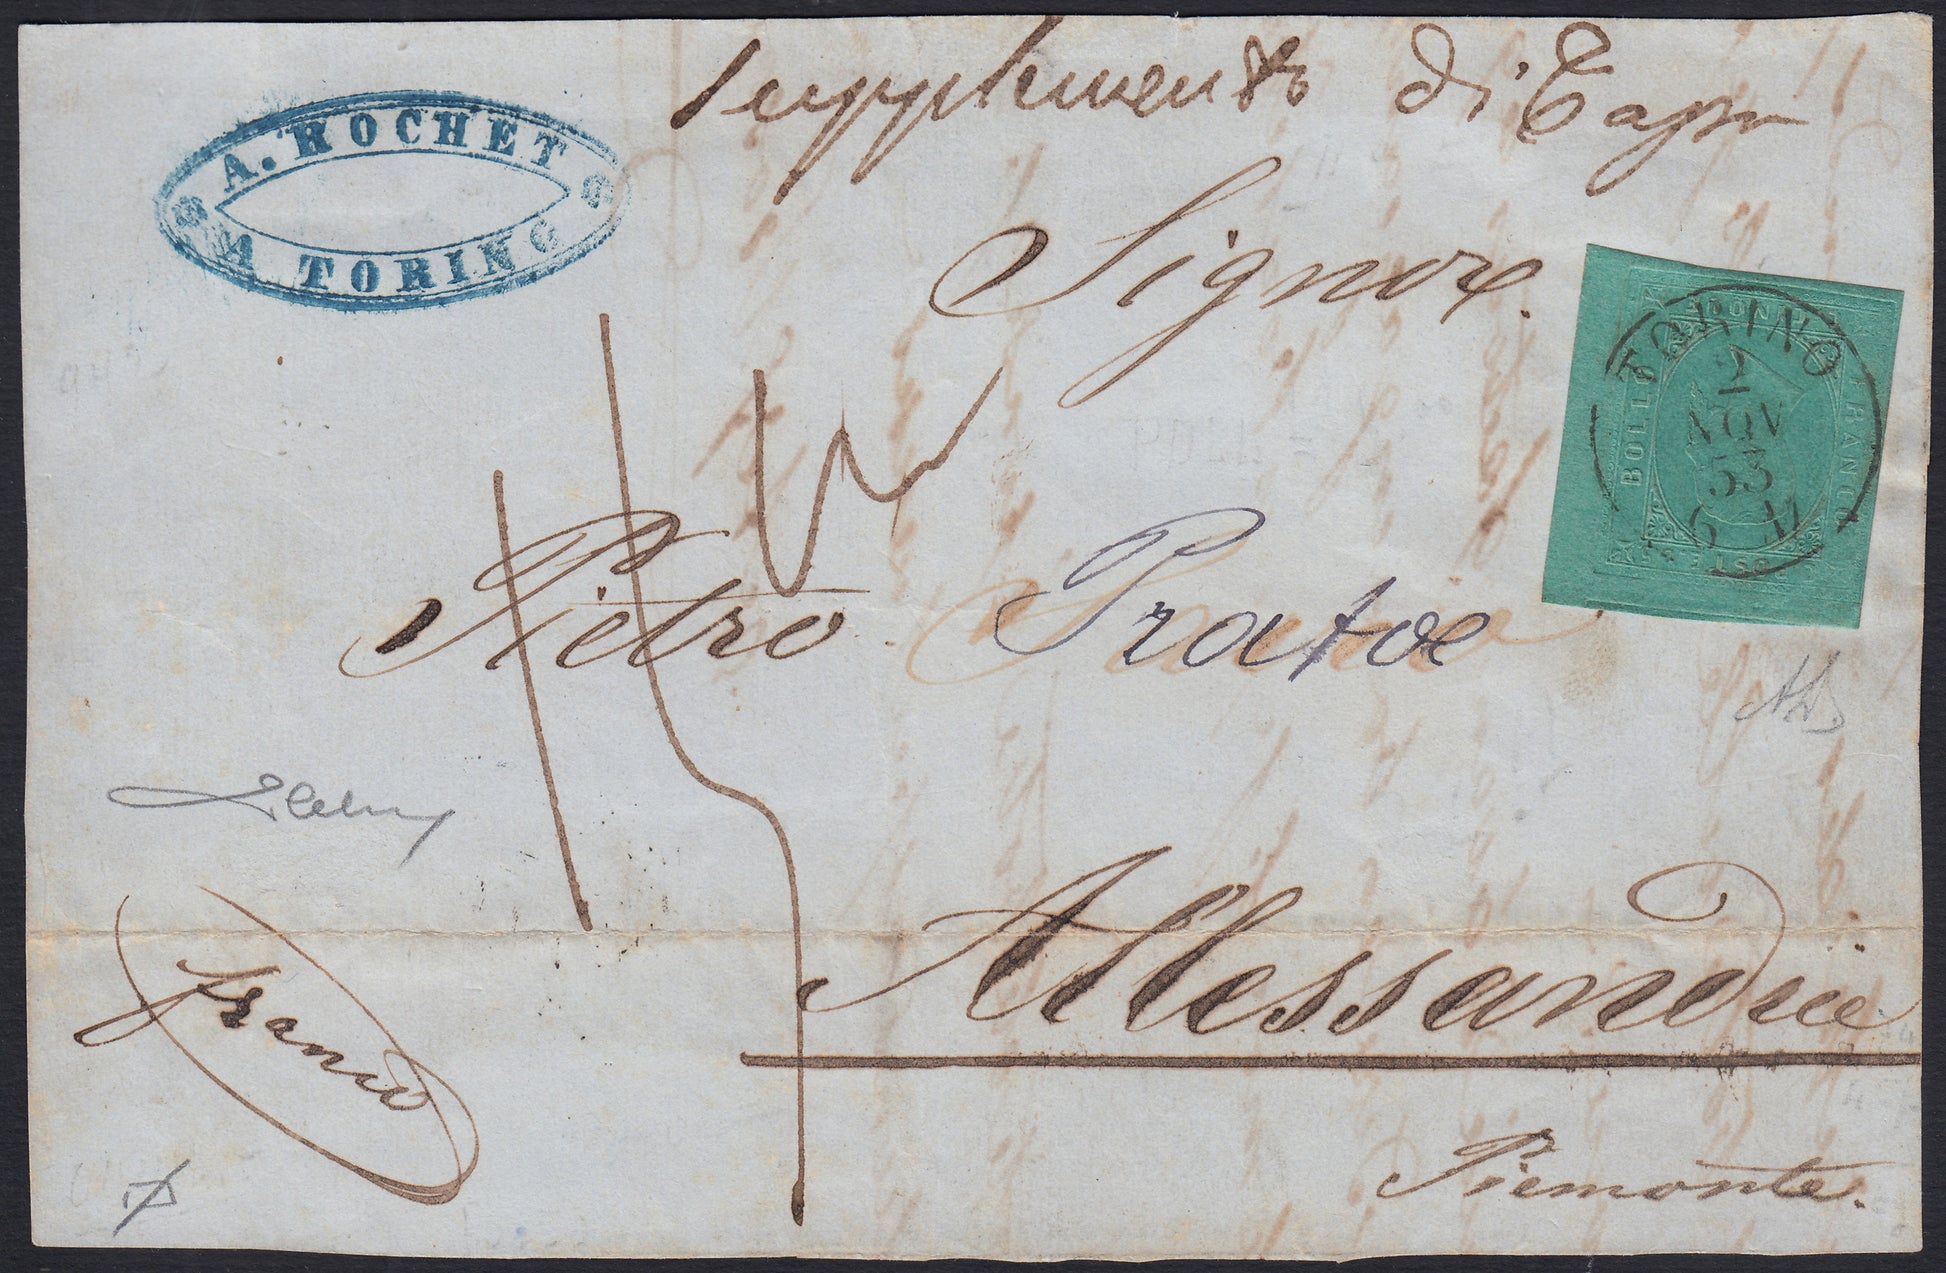 supplemento di Tassa
A. ROCHET
A TORINO
Signor.
TORINO
2
NOV
53
6 M
BOLLO
FRANCO
POSTE
Pietro
Alessandrie
franco
Piemonte.